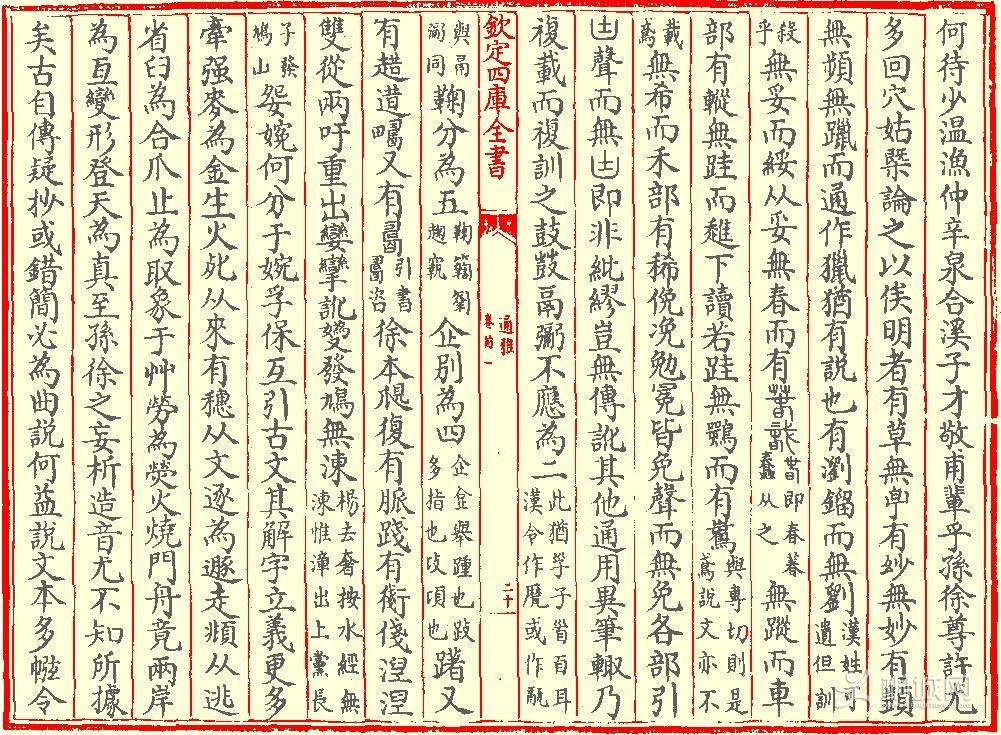 何待少温漁仲辛泉合溪子才敬甫輩乎孫徐尊許尤
多回穴姑槩論之以俟明者有草無丱有妙無妙有顭
無頻無躐而通作獵猶有說也有瀏鎦而無劉漢姓可遺但訓
殺乎無妥而綏从妥無春而有萅即春著蠢从之無蹤而車
部有軭無跬而䞨下讀若跬無鷃而有與専切則是鳶說文亦不
載鳶無希而禾部有稀俛凂勉冕皆免聲而無免各部引
聲而無即非紕繆豈無傳訛其他通用異筆輙乃
複載而複訓之鼓鼔鬲䰜不應為二此猶孚子𦣻百耳漢令作
欽定四庫全書
通雅
卷首一
二十
與鬲䰜同鞠分為五企別為四企舉踵也跂多指也攱頃也躇又
有趞逪又有引書徐本覛復有脈踐有衘俴湼湼
雙從兩吁重出孌攣訛變發鳩無涷楊去奢按水經無涷惟漳出上黨長
子發鳩山婉婉何分于婉孚保互引古文其解字立義更多
牽强麥為金生火死从來有穗从文逐為遯走𩑶从逃
省臼為合爪止為取象于艸勞為熒火燒門舟竟兩岸
為亙變形登天為真至孫徐之妄析造音尤不知所據
矣古自傳疑抄或錯簡必為曲說何益說文本多㡭令